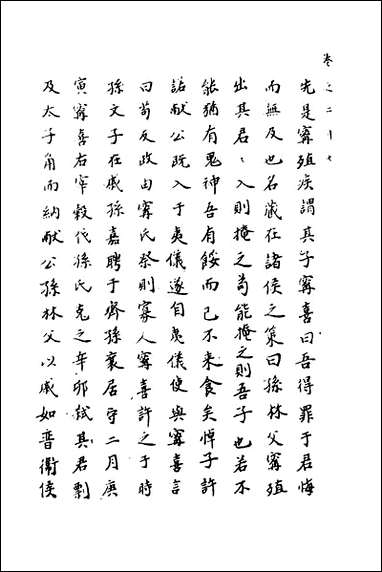 卷之二十七
先是寗殖疾謂其子寗喜曰吾得罪于君悔
而無及也名藏在諸侯之策曰孫林父寗殖
出其君〻入則掩之苟能掩之則吾子也若不
能猶有鬼神吾有餒而已不来食矣悼子許
諾献公既入于夷儀遂自夷儀使與寗喜言
曰苟反政由寗氏祭則寡人寗喜許之于時
孫文子在戚孫嘉聘于齊孫襄居守二月庚
寅寗喜右宰榖伐孫氏克之辛夘弑其君剽
及太子角而納献公孫林父以戚如晋衞侯